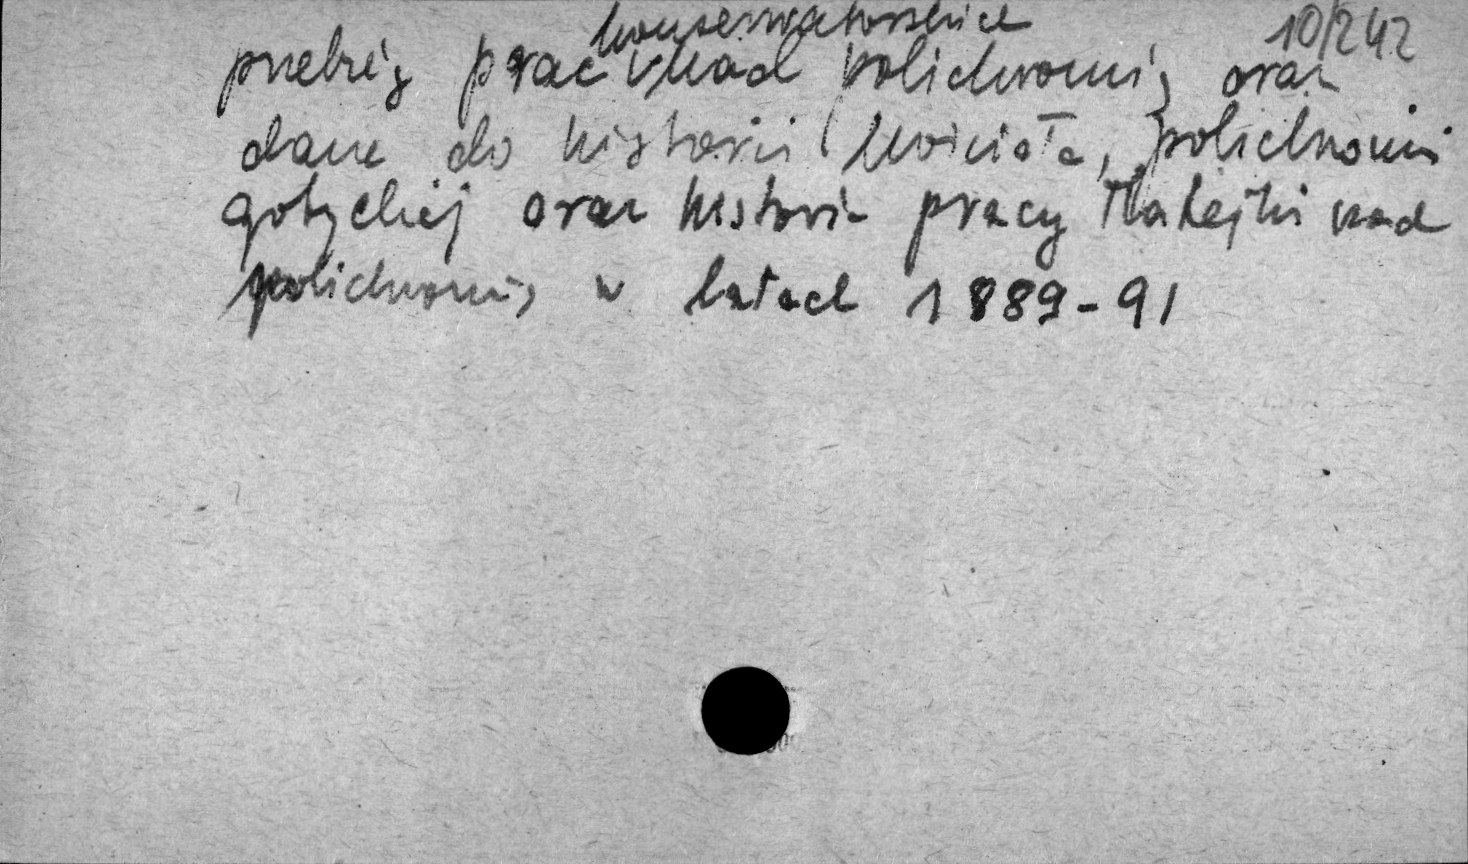 konserwatorskich 10/242
przebieg prac nad polichromią oraz
dane do historii kościoła, polichromii
gotyckiej oraz historii pracy Matejki nad
polichromią w latach 1889-91